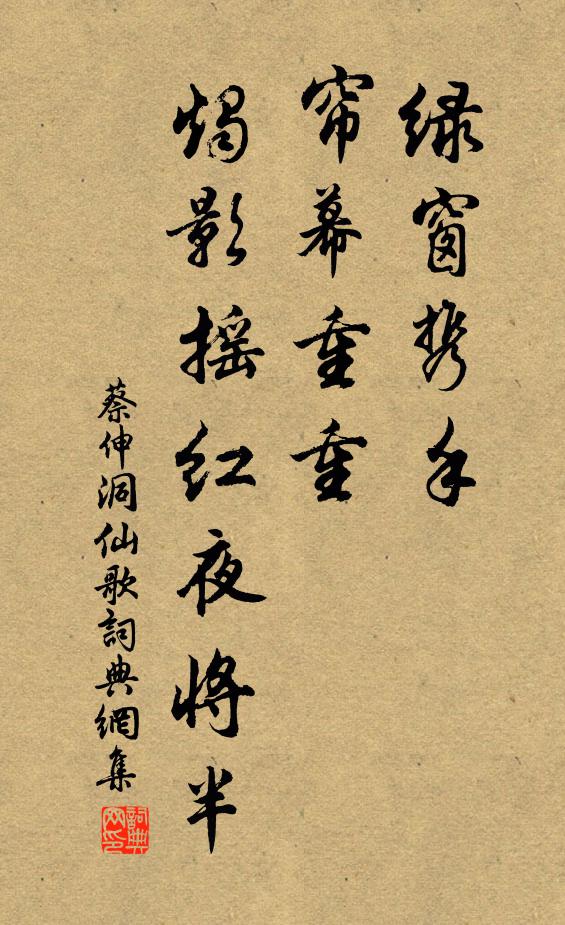 绿窗携手
帘幕重重
烛影摇红夜将半
蔡伸洞仙歌詞典網集
詞典网印